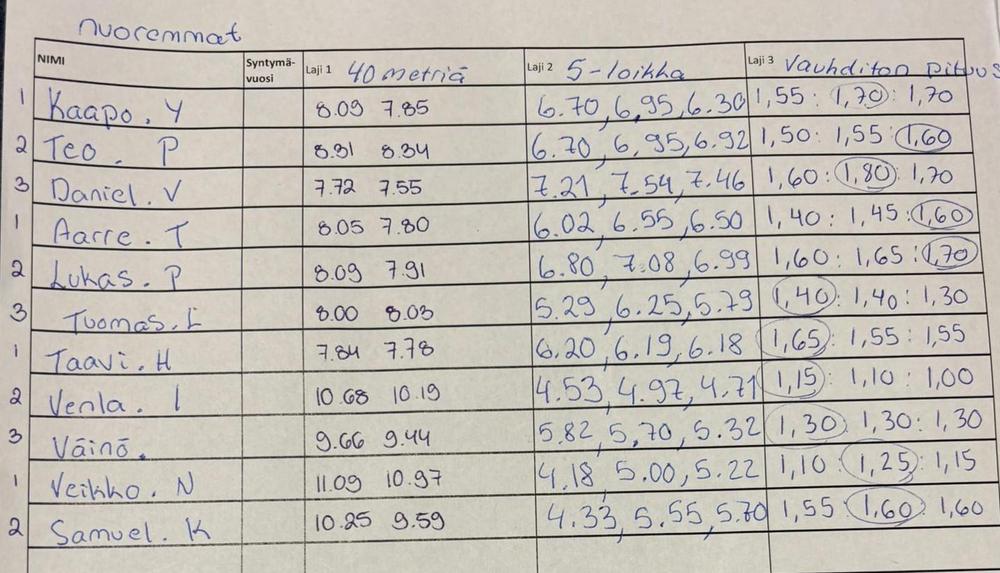 nuoremmat
NIMI Syntymä-vuosi Laji 1 40 metriä Laji 2 5-loikka Laji 3 Vauhditon pituus
1 Kaapo. Y 8.09 7.85 6.70, 6,95, 6.30 1,55: 1,70: 1,70
2 Teo. P 8.31 8.34 6.70, 6,95, 6.92 1,50: 1,55 1,60
3 Daniel. V 7.72 7.55 7.21, 7.54, 7.46 1,60: 1,80: 1,70
1 Aarre. T 8.05 7.80 6.02, 6.55, 6.50 1,40: 1,45: 1,60
2 Lukas. P 8.09 7.91 6.80, 7.08, 6.99 1,60: 1,65: 1,70
3 Tuomas. L 8.00 8.03 5.29, 6.25, 5.79 1,40: 1,40: 1,30
1 Taavi. H 7.84 7.78 6.20, 6.19, 6.18 1,65: 1,55: 1,55
2 Venla. I 10.68 10.19 4.53, 4.97, 4.71 1,15: 1,10: 1,00
3 Väinö. 9.66 9.44 5,82, 5,70, 5.32 1,30: 1,30: 1,30
1 Veikko. N 11.09 10.97 4.18, 5.00, 5.22 1,10: 1,25: 1,15
2 Samuel. K 10.25 9.59 4.33, 5.55, 5.70 1,55: 1,60: 1,60